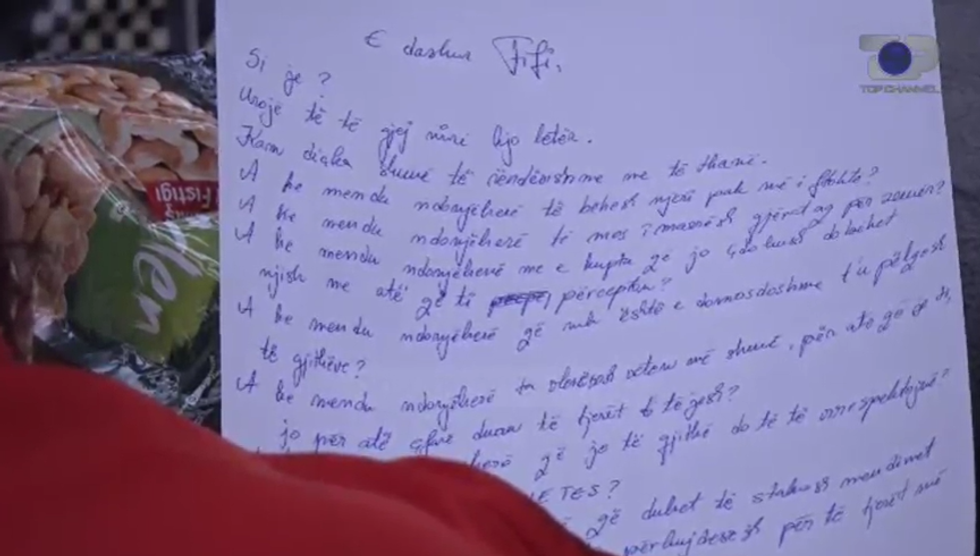 E dashur Fifi,
Si je?
Uroj të të gjej mirë kjo letër.
Kam diçka shumë të rëndësishme me të thanë.
A ke mendu ndonjëherë të bëhesh njeri pak më i ftohtë?
A ke mendu ndonjëherë të mos i marrësh gjërat aq për zemër?
A ke mendu ndonjëherë me e kuptu që jo çdo kush do bëhet
njish me atë që ti perceptu?
A ke mendu ndonjëherë që nuk është e domosdoshme t'u pëlqesh
të gjithëve?
A ke mendu ndonjëherë ta vlerësosh veten më shumë, për ato që je ti,
jo për atë çfarë duan të tjerët të jesh?
që jo të gjithë do të të respektojnë?
ETES?
që duhet të mendimet
për të tjerët më
Fistigi
TOP CHANNEL